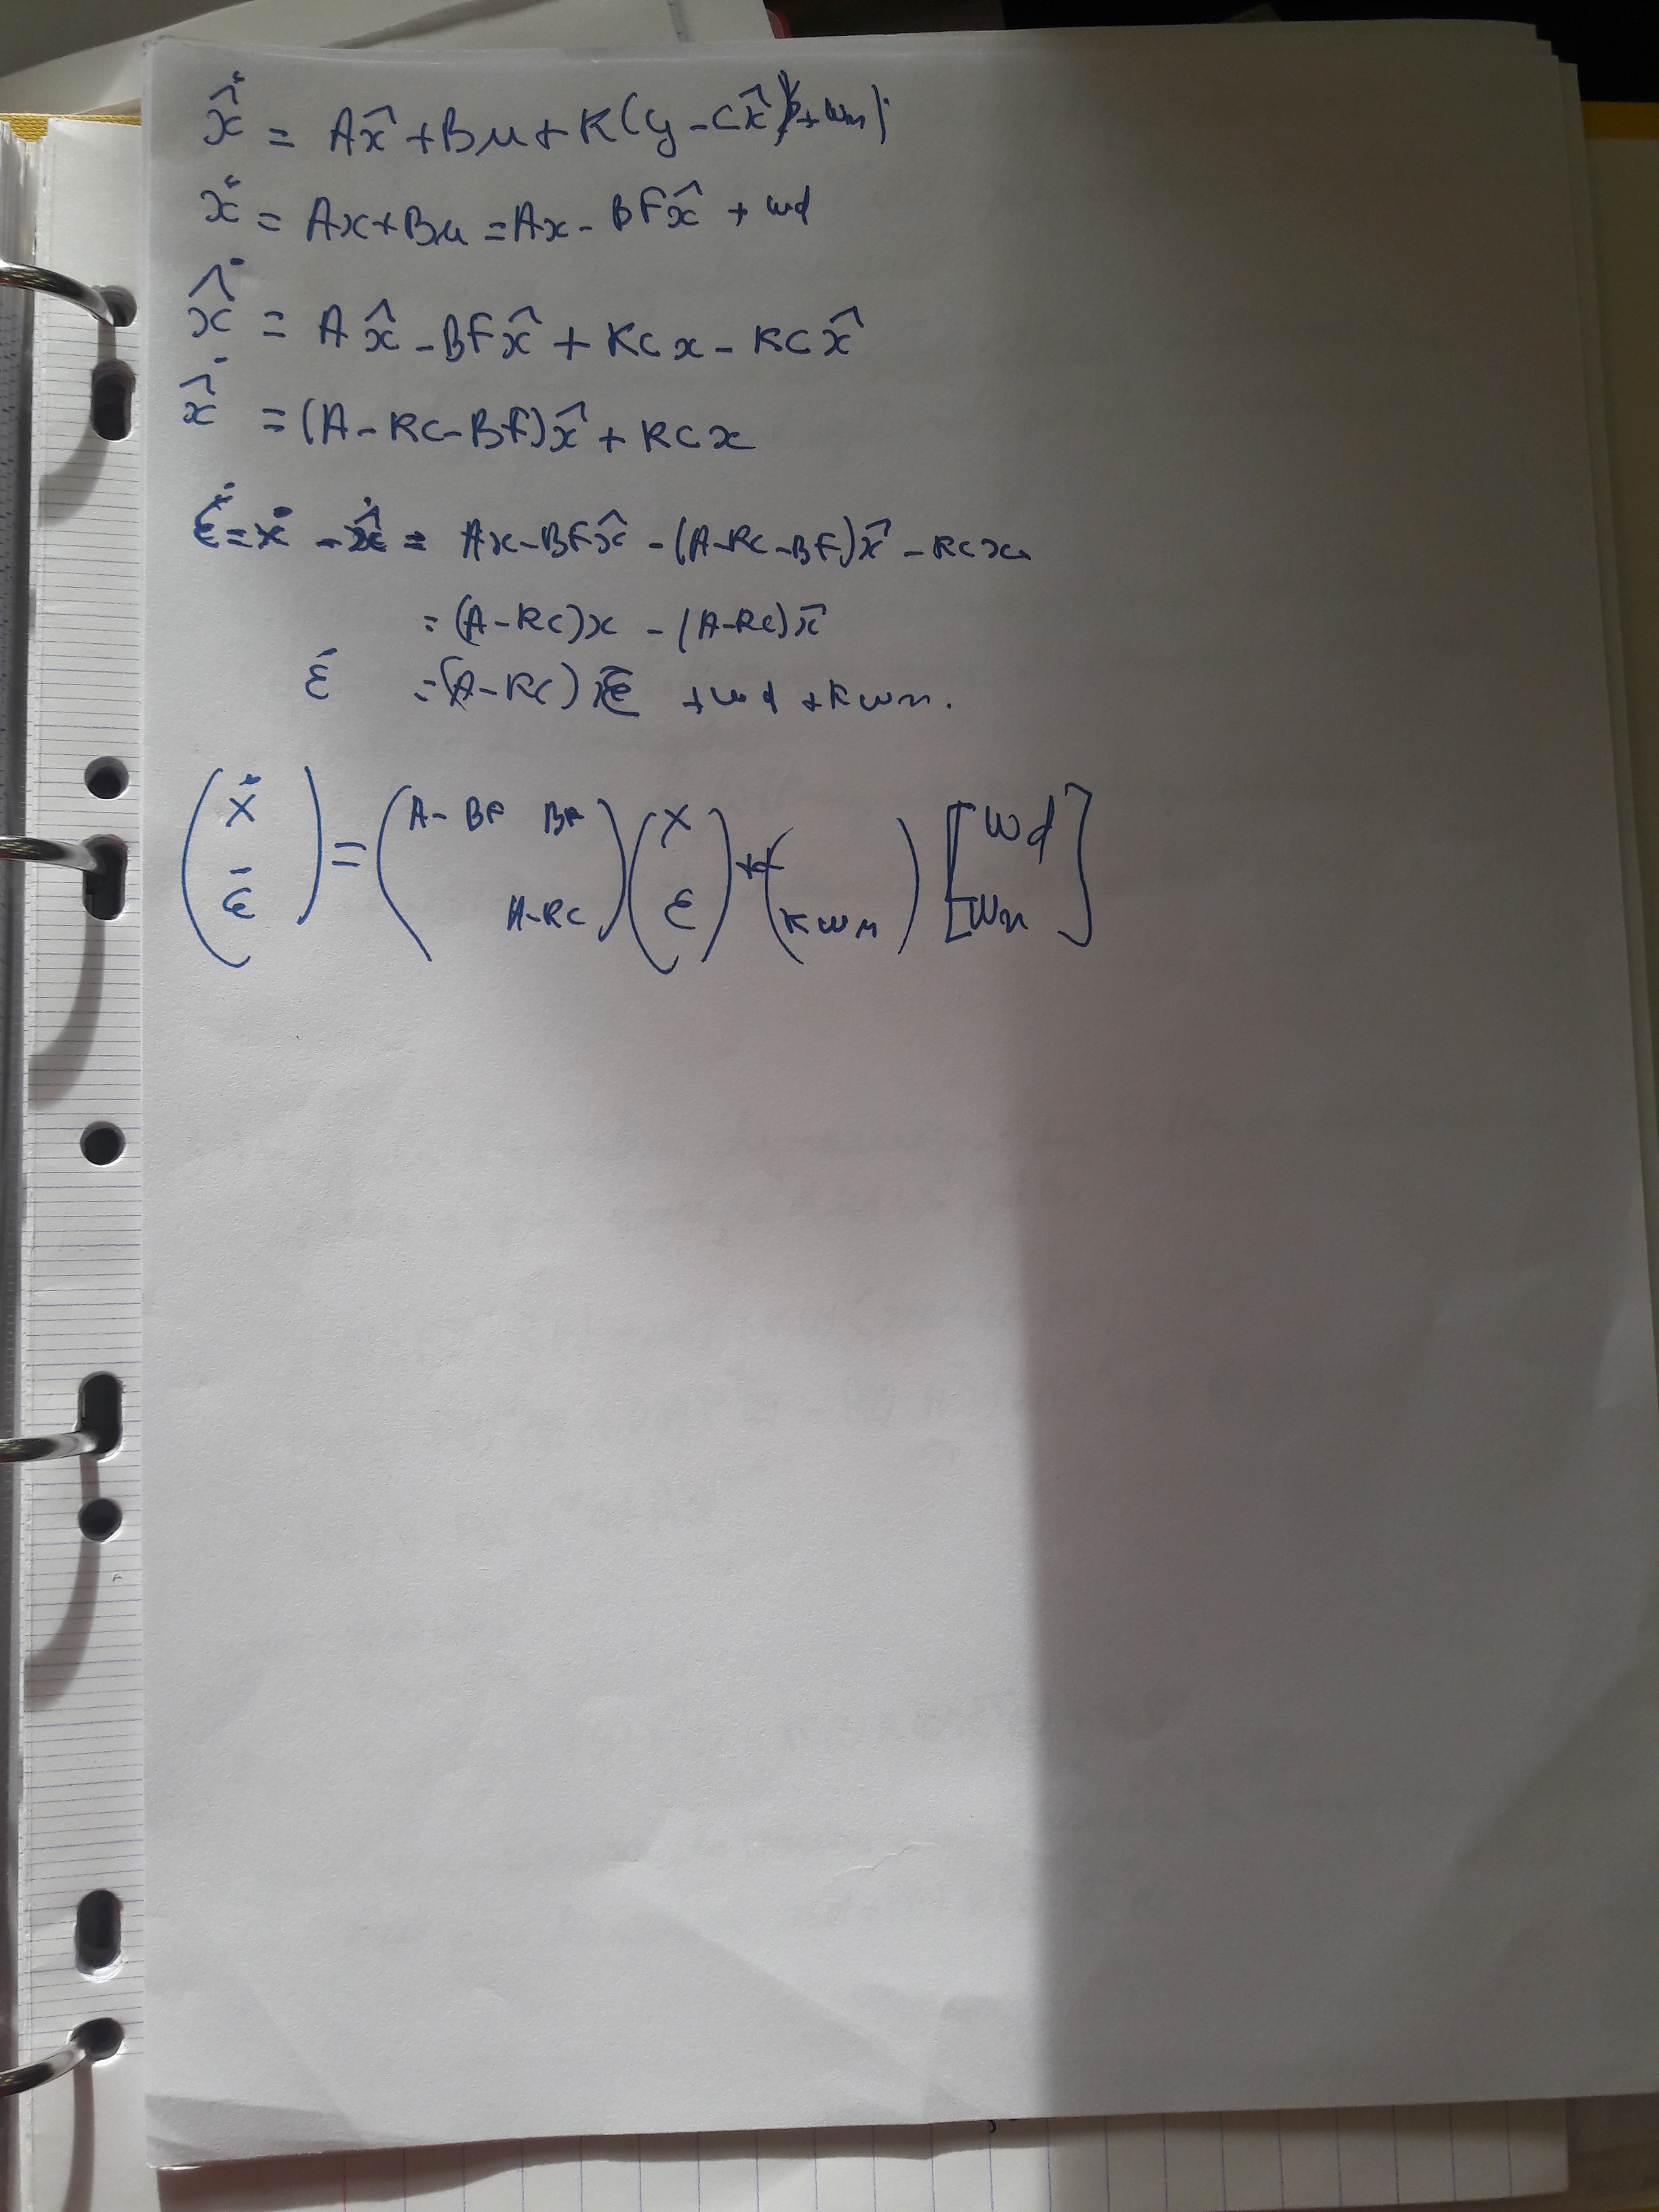 x̂̇ = Ax̂ + Bu + K(y - Cx̂ + wn)
ẋ = Ax + Bu = Ax - BFx̂ + wd
x̂̇ = Ax̂ - BFx̂ + KCx - KCx̂
x̂̇ = (A - KC - BF)x̂ + KCx
ε̇ = ẋ - x̂̇ = Ax - BFx̂ - (A - KC - BF)x̂ - KCx
= (A - KC)x - (A - KC)x̂
ε̇ = (A - KC)ε + wd + Kwn.
(ẋ ε̇) = (A - BF BF A - KC)(x ε) + (Kwn)[wd wn]